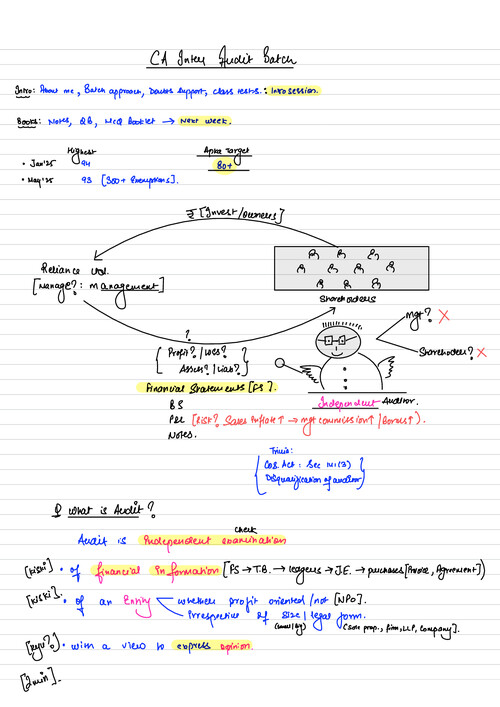 CA Inter Audit Batch
Intro: About me, Batch approach, Doubts support, class tests. : Intro session.
Books: Notes, QB, MCQ Booklet → Next week.
Highest
Apna Target
• Jan'25 94 80+
• May'25 93 [300+ Exemptions].
₹ [Invest/owners]
Reliance Ltd.
[Manage? : Management]
Shareholders
?
Profit? / Loss?
Assets? / Liab?
Mgt? X
Shareholders? X
Financial Statements [FS].
Independent Auditor.
BS
P&L [Risk? Sales Inflate↑ → mgt commission↑ / Bonus↑]
Notes.
Trivia:
Cos. Act : Sec 141(3)
Disqualification of auditor
Q What is Audit?
check
Audit is Independent examination
[kiski] • of financial information [FS → T.B. → ledgers → J.E. → purchases [Invoice, Agreement]]
[kiski]. • of an Entity whether profit oriented / not [NPO].
irrespective of size / legal form.
(small/big) (sole prop., firm, LLP, company].
[kyu?] • with a view to express opinion.
[2 min].